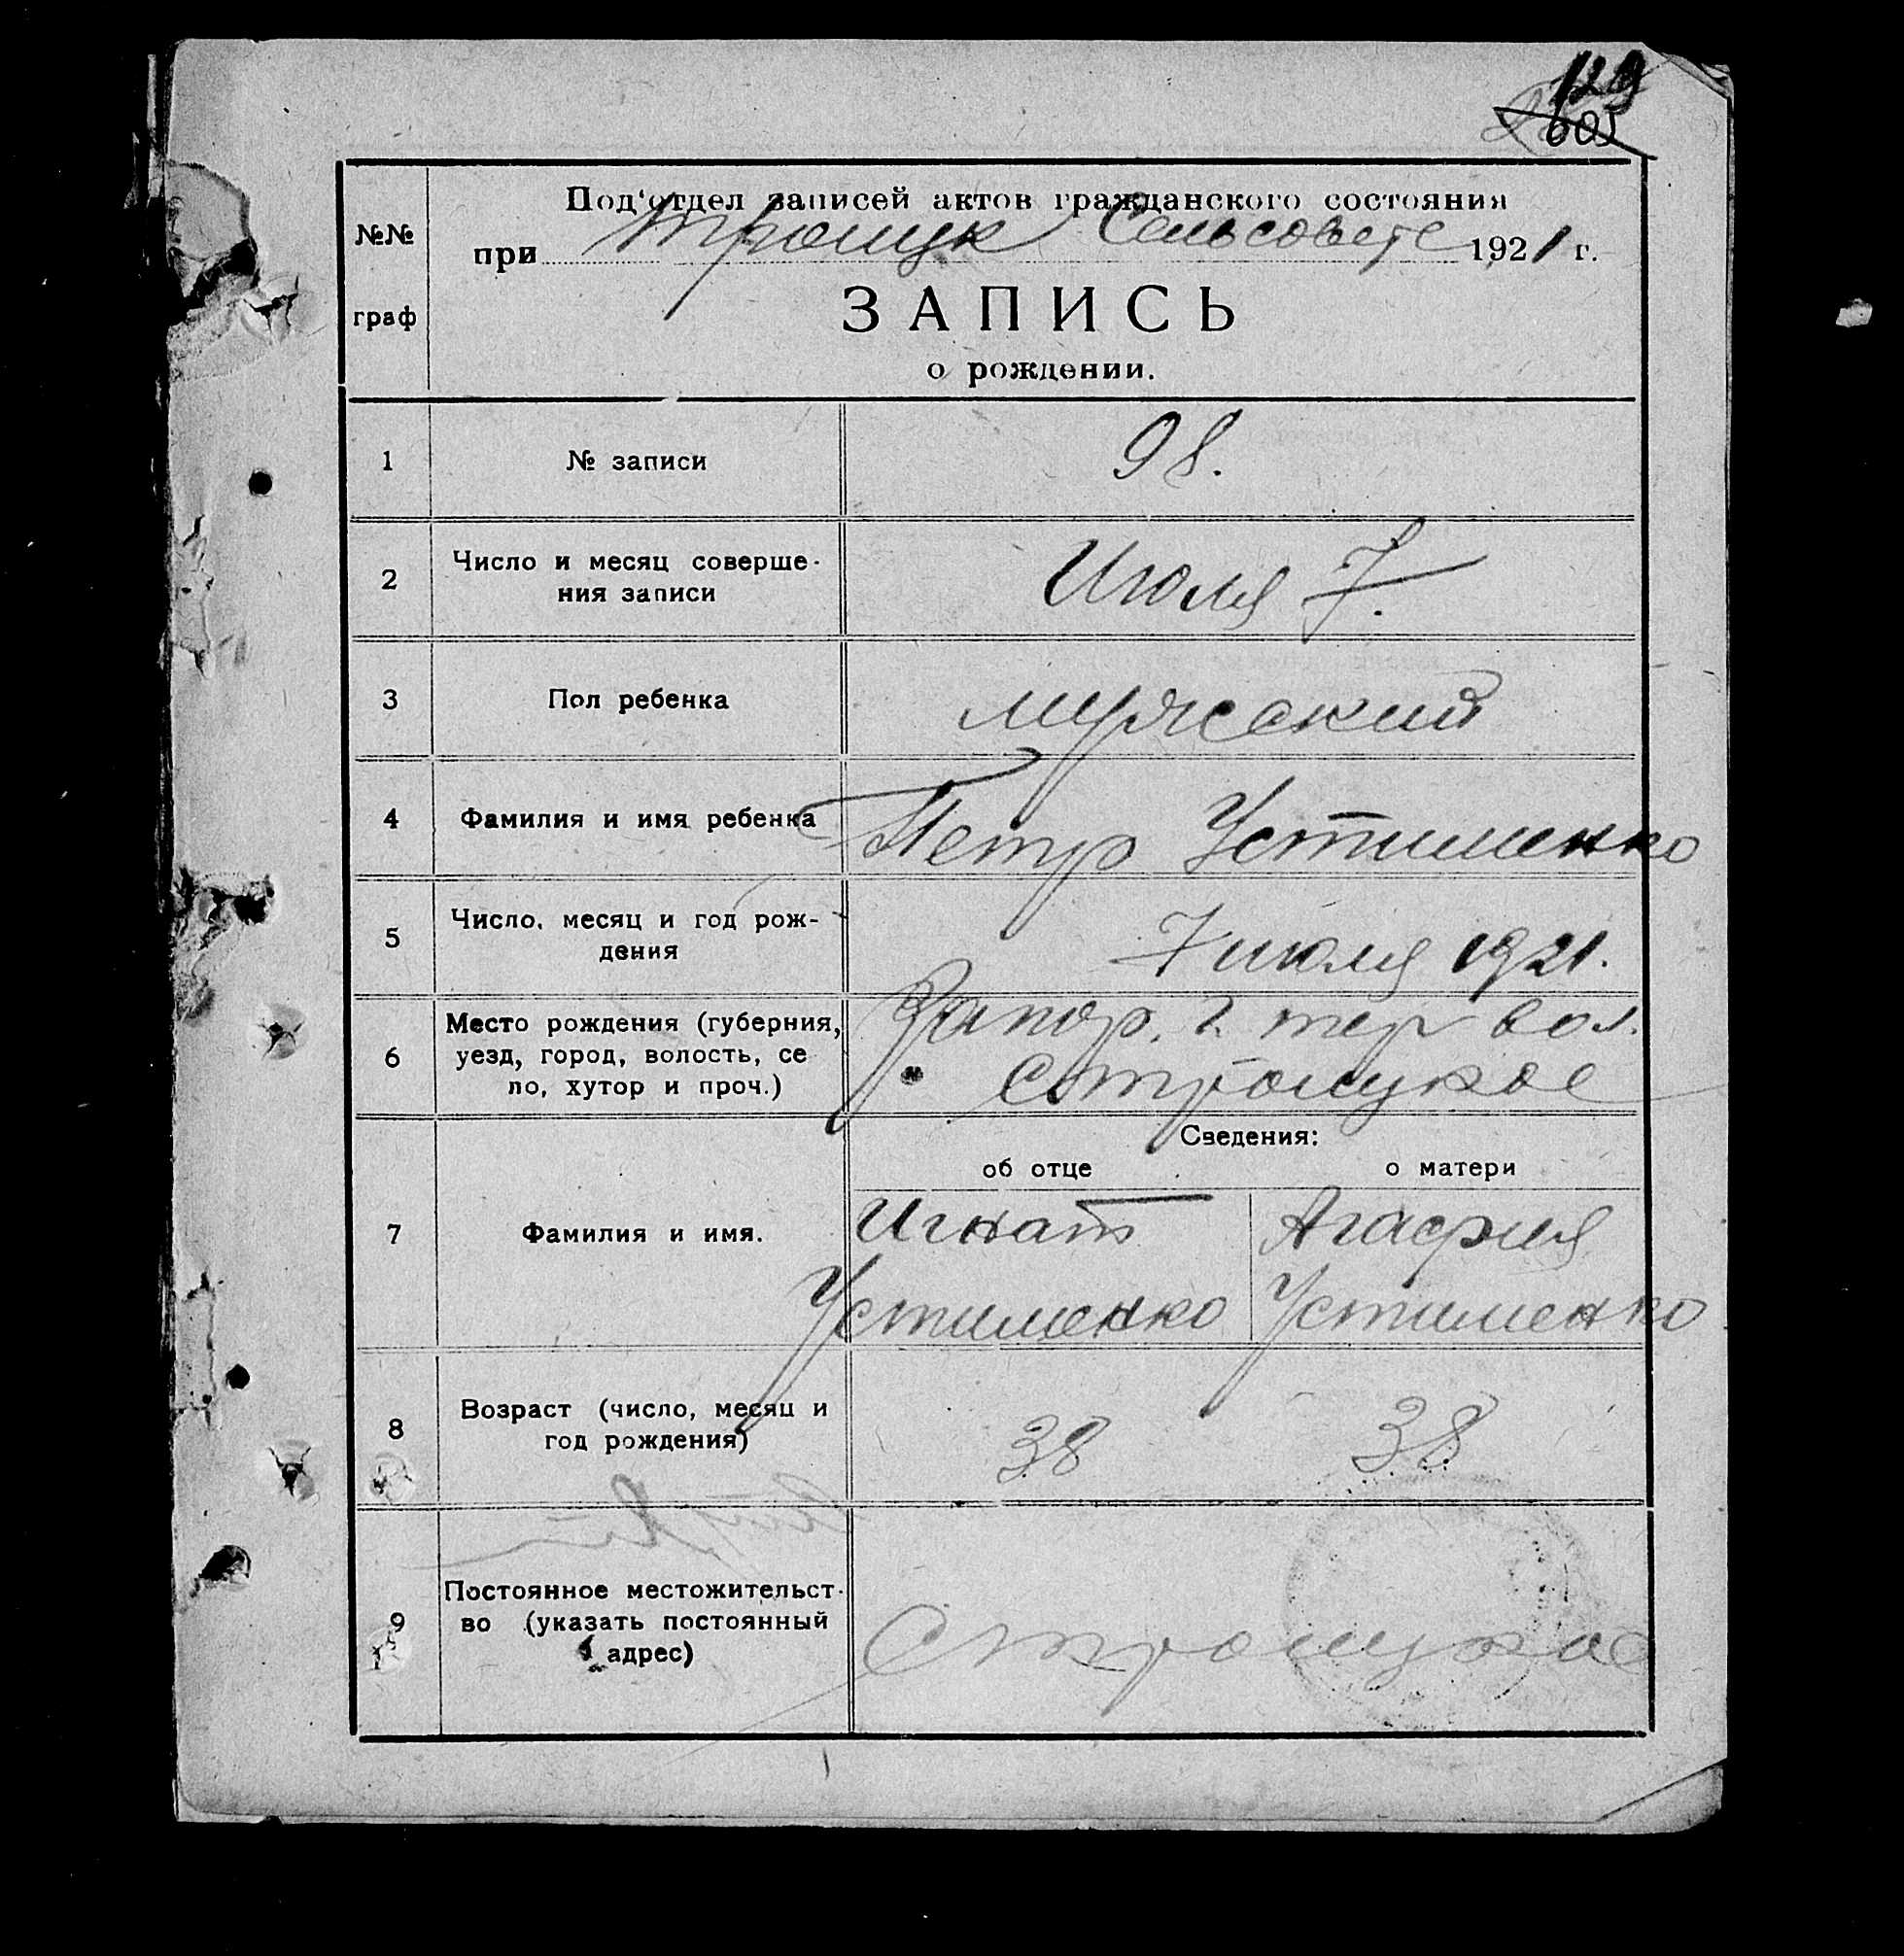 129
605
Под'отдел записей актов гражданского состояния
№№
при Троицк Сельсовете 1921 г.
граф
ЗАПИСЬ
о рождении.
1 № записи 98.
2 Число и месяц соверше-
ния записи Июля 7.
3 Пол ребенка мужеский
4 Фамилия и имя ребенка Петр Устименко
5 Число, месяц и год рож-
дения 7 июля 1921.
6 Место рождения (губерния, Запор. г. тер вол.
уезд, город, волость, се
ло, хутор и проч.) с троицкое
Сведения:
об отце о матери
7 Фамилия и имя. Игнат Агафия
Устименко Устименко
8 Возраст (число, месяц и
год рождения) 38 38
9 Постоянное местожительст-
во (указать постоянный
адрес) с троицкое